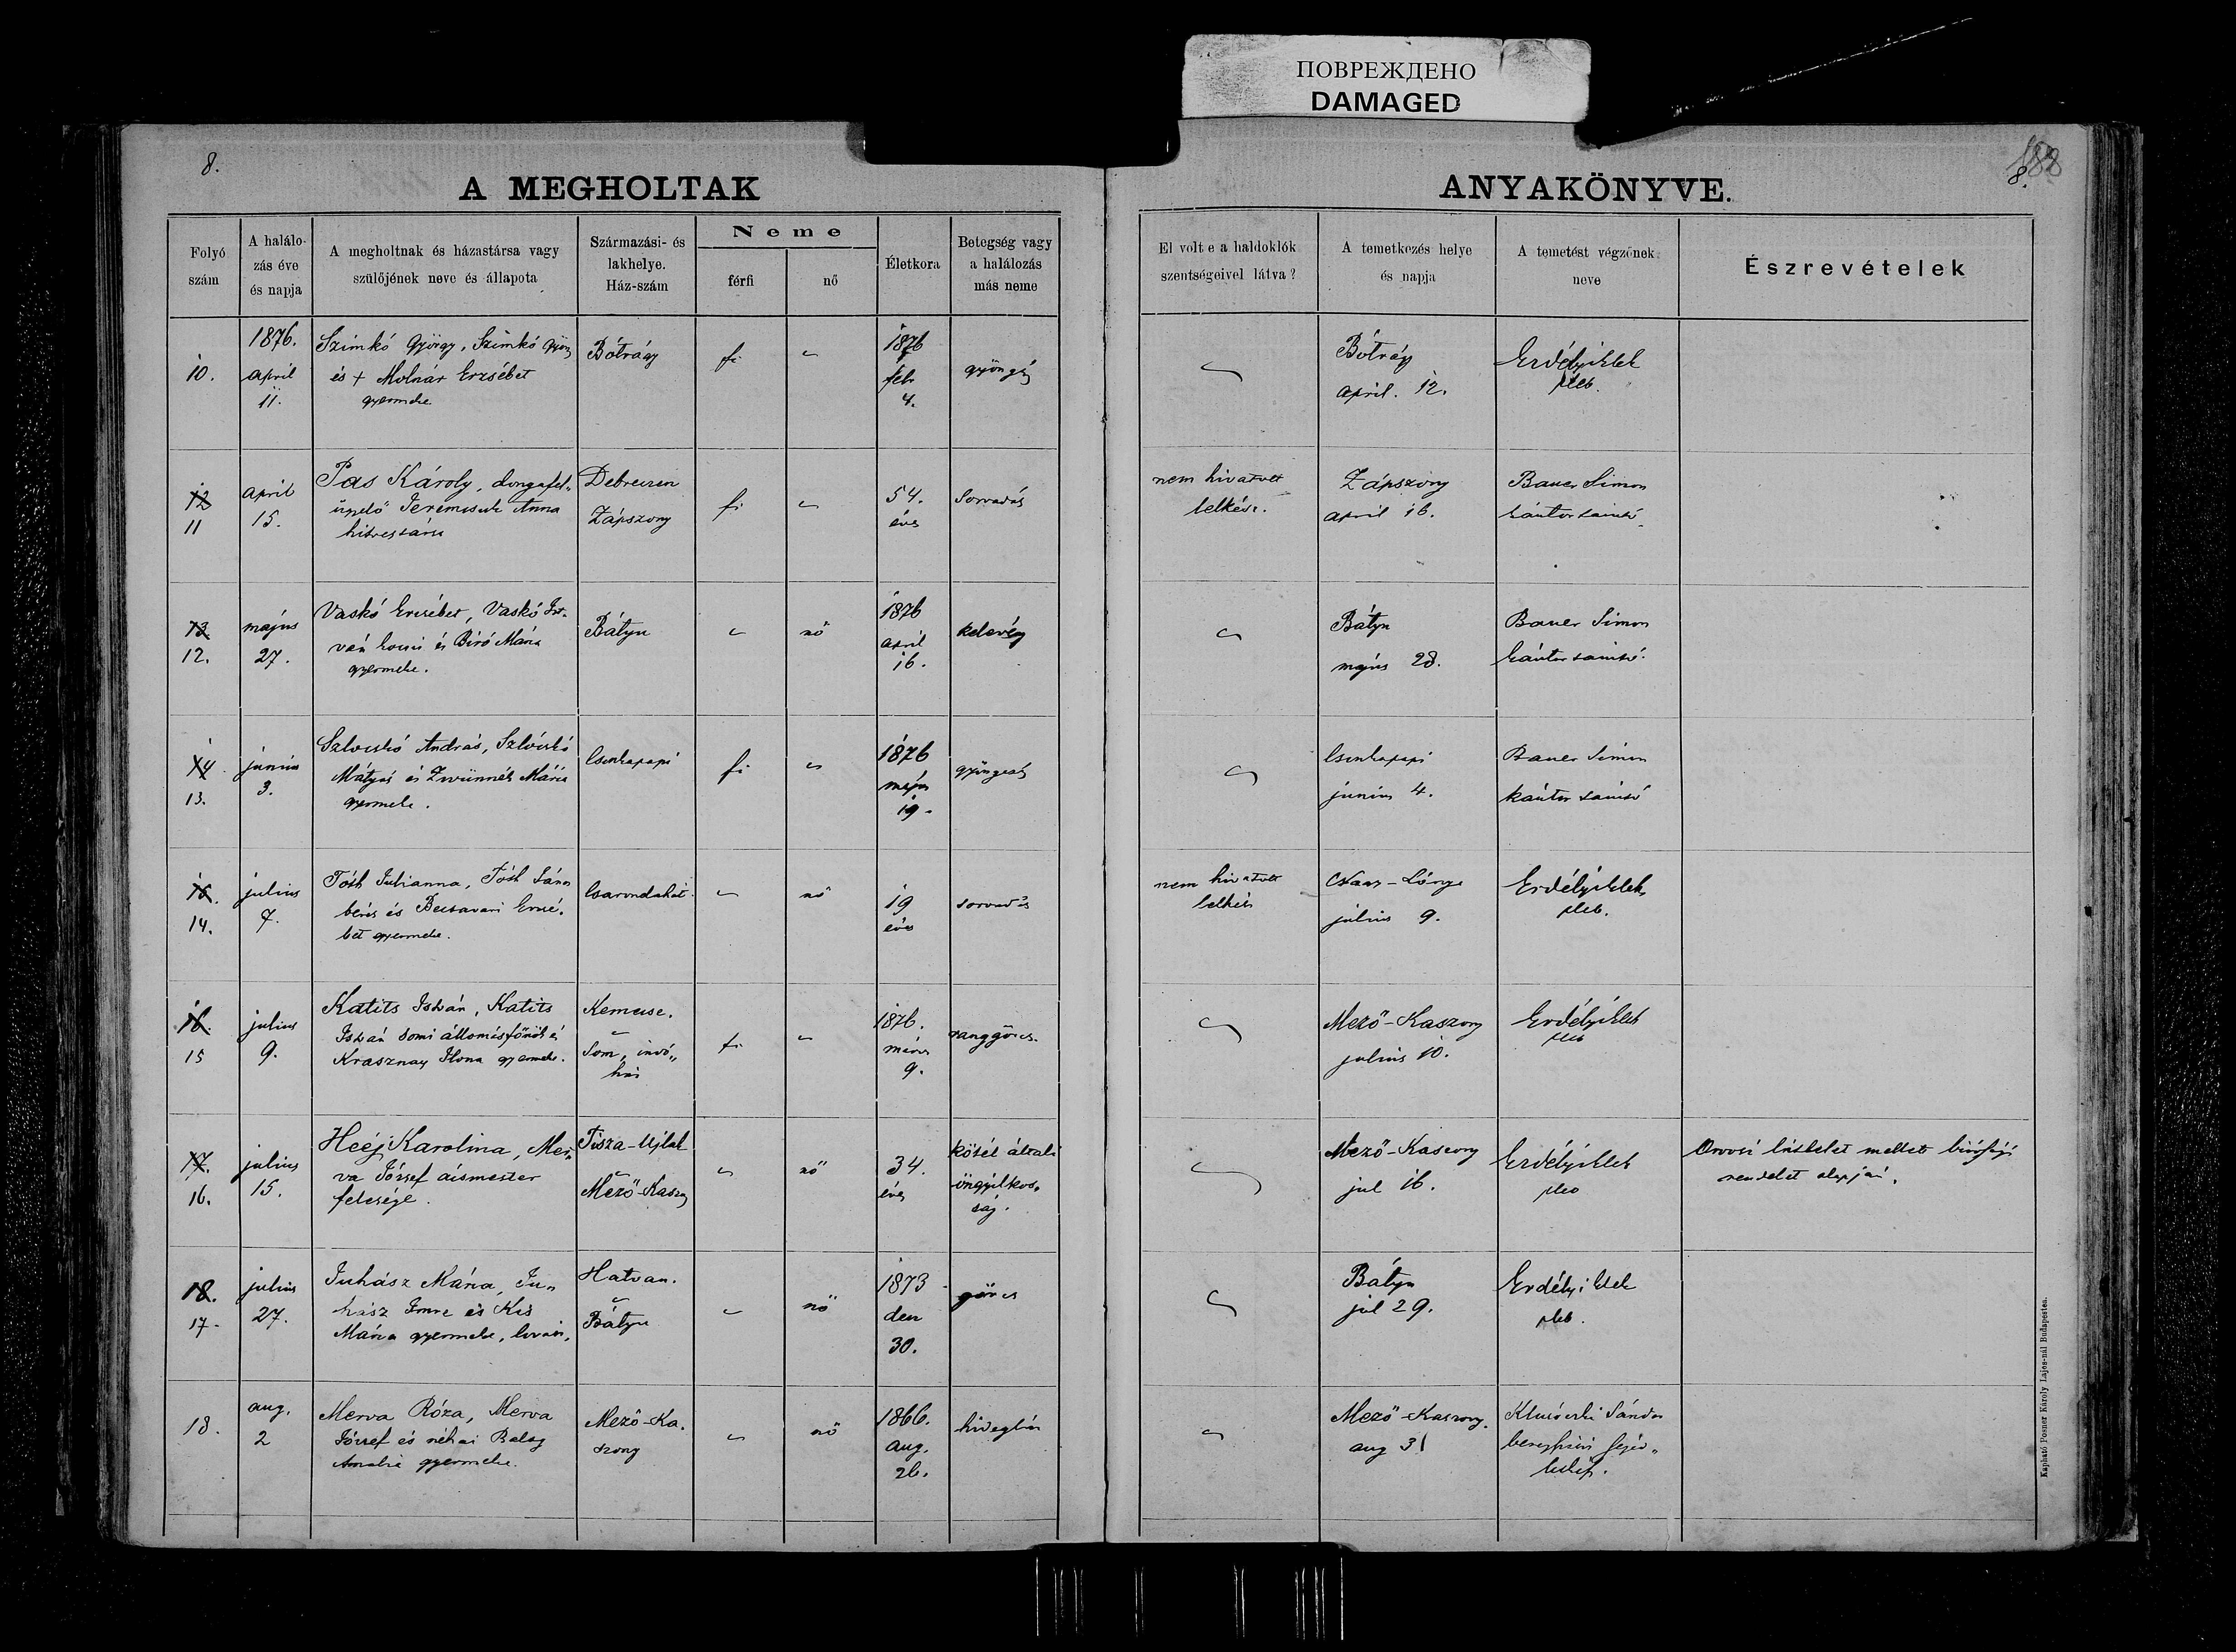 ПОВРЕЖДЕНО
DAMAGED
8.
188
8.
A MEGHOLTAK
ANYAKÖNYVE.
Folyó
szám
A halálo-
zás éve
és napja
A megholtnak és házastársa vagy
szülőjének neve és állapota
Származási- és
lakhelye.
Ház-szám
Neme
férfi
nő
Életkora
Betegség vagy
a halálozás
más neme
El volt e a haldoklók
szentségeivel látva?
A temetkezés helye
és napja
A temetést végzőnek
neve
Észrevételek
10.
1876.
april
11.
Szimkó György, Szimkó
és + Molnár Erzsébet
gyermeke
Bótrágy
fi
1876
feb
4.
Bótrágy
april. 12.
Erdélyi Elek
pleb.
12
11
april
15.
Pas Károly,
Anna
Debreczen
Zápszony
fi
54.
éves
Sorvadás
nem hivatott
lelkész.
Zápszony
april 16.
Bauer Simon
kántor tanító
13
12.
május
27.
Vaskó Erzsébet, Vaskó Ist-
ván kocsis és Biró Mária
gyermeke.
Bátyu
nő
1876
april
16.
kelevény
Bátyu
május 28.
Bauer Simon
kántor tanító
14
13.
junius
3.
András,
Mátyás és Mária
gyermeke.
fi
1876
május
19.
junius 4.
Bauer Simon
kántor tanító
14.
julius
7.
Tóth Julianna, Tóth János
béres és Erzsé-
bet gyermeke.
nő
19
éves
sorvadás
nem hivatott
lelkész
julius 9.
Erdélyi Elek
pleb.
16.
15
julius
9.
Katits István, Katits
István somi állomásfőnök és
Krasznay Ilona gyermeke.
Kemecse.
Som,
fi
1876.
márcz
9.
ranggörcs.
Mező-Kaszony
julius 10.
Erdélyi Elek
pleb
17.
16.
julius
15.
Heéj Karolina, Mer-
va József ácsmester
felesége.
Tisza-Ujlak
Mező-Kaszony
nő
34.
éves
kötél általi
öngyilkos-
ság.
Mező-Kaszony
jul 16.
Erdélyi Elek
pleb
Orvosi látlelet mellett birósági
rendelet alapján.
18.
17.
julius
27.
Juhász Mária, Ju-
hász Imre és Kis
Mária gyermeke,
Hatvan.
Bátyu
nő
1873
dec
30.
görcs
Bátyu
jul 29.
Erdélyi Elek
pleb.
18.
aug.
2
Merva Róza, Merva
József és néhai Balog
Amalia gyermeke.
Mező-Ka-
szony
nő
1866.
aug.
26.
hidegláz
Mező-Kaszony.
aug 3
Sándor
Kapható Posner Károly Lajos-nál Budapesten.